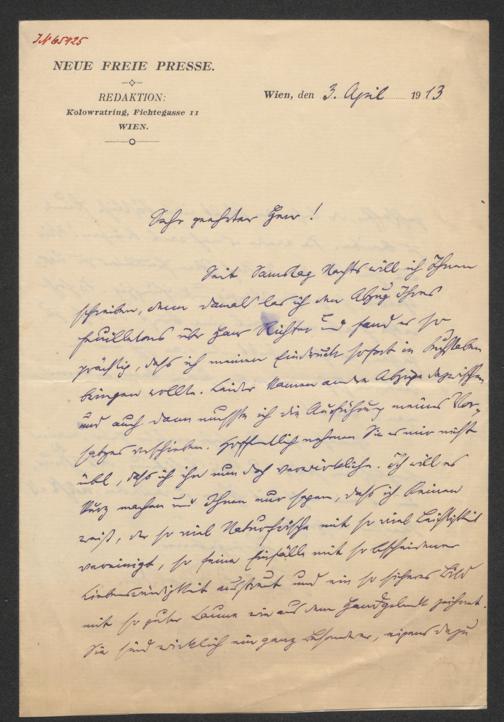 IN 65925
NEUE FREIE PRESSE.
REDAKTION:
Kolowratring, Fichtegasse 11
WIEN.
Wien, den 3. April 1913
Sehr geehrter Herr!
Seit Samstag Nachts will ich Ihnen
schreiben, denn damals las ich den Abzug Ihres
Feuilletons über Hans Richter und fand es so
prächtig, daß ich meinen Eindruck sofort in Buchstaben
bringen wollte. Leider kamen andre Abzüge dazwischen
und auch dann mußte ich die Ausführung meines Vor-
satzes verschieben. Hoffentlich nehmen Sie es mir nicht
übl, daß ich ihn nun doch verwirkliche. Ich will es
kurz machen und Ihnen nur sagen, daß ich keinen
weiß, der so viel Naturfrische mit so viel Leichtigkeit
vereinigt, so feine Einfälle mit so bescheidener
Liebenswürdigkeit ausstreut und ein so sicheres Bild
mit so guter Laune wie aus dem Handgelenk zeichnet.
Sie sind wirklich ein ganz besonderer, eigens dazu